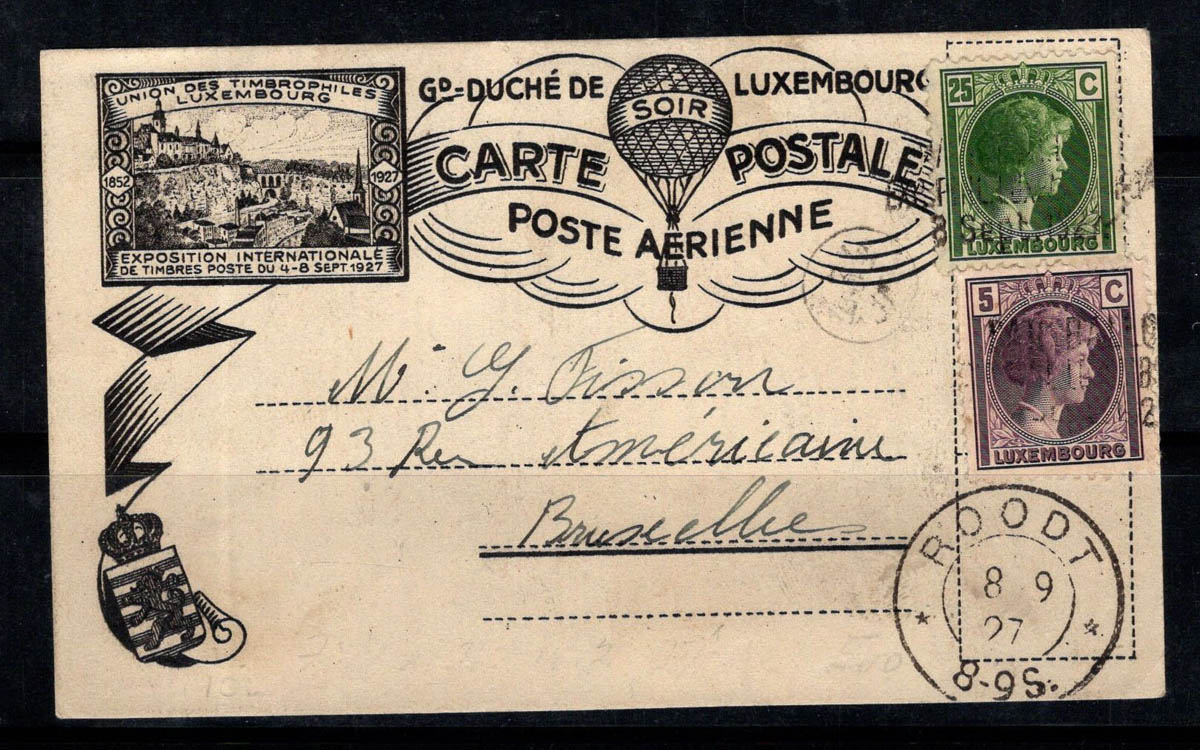 UNION DES TIMBROPHILES
LUXEMBOURG
1852
1927
EXPOSITION INTERNATIONALE
DE TIMBRES POSTE DU 4-8 SEPT. 1927
GD-DUCHÉ DE LUXEMBOURG
SOIR
CARTE POSTALE
POSTE AÉRIENNE
25 C
LUXEMBOURG
5 C
LUXEMBOURG
M. J. Fisson
93 Rue Américaine
Bruxelles
ROODT
8 9
27
8-9S.